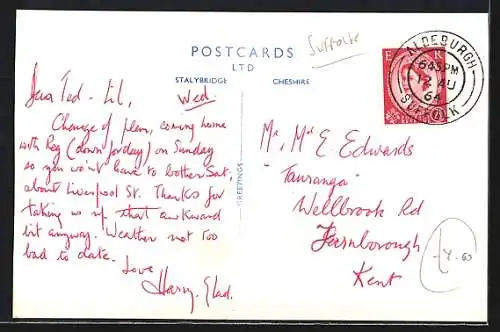 Suffolk
POSTCARDS
LTD
STALYBRIDGE CHESHIRE
GREETINGS
ALDEBURGH
645PM
12 AU
64
SUFFOLK
E R
Dear Ted - Lil, Wed.
Change of plan, coming home
with Reg (down for day) on Sunday
so you won't have to bother Sat,
about Liverpool St. Thanks for
taking us up that awkward
bit anyway. Weather not too
bad to date.
Love
Harry, Glad.
Mr, Mrs E Edwards
"Tauranga"
Wellbrook Rd
Farnborough
Kent
£4.00